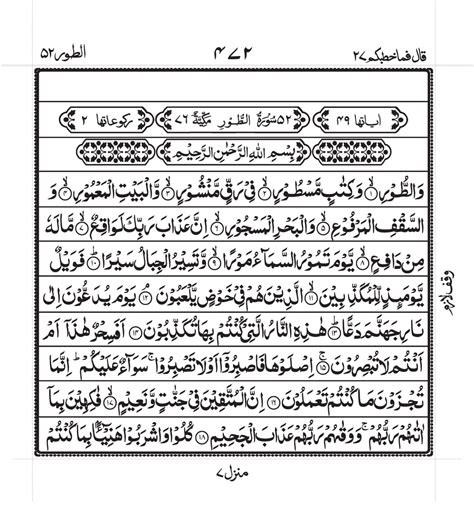 قال فماخطبكم ٢٧ ٤٧٢ الطور ٥٢
اٰیاتها ٤٩ ٥٢ سُوْرَةُ الطُّوْرِ مَكِّيَّةٌ ٧٦ ركوعاتها ٢
بِسْمِ اللّٰهِ الرَّحْمٰنِ الرَّحِيْمِ
وَالطُّوْرِ ۙ﴿١﴾ وَكِتٰبٍ مَّسْطُوْرٍ ۙ﴿٢﴾ فِيْ رَقٍّ مَّنْشُوْرٍ ۙ﴿٣﴾ وَّالْبَيْتِ الْمَعْمُوْرِ ۙ﴿٤﴾ وَ
السَّقْفِ الْمَرْفُوْعِ ۙ﴿٥﴾ وَالْبَحْرِ الْمَسْجُوْرِ ۙ﴿٦﴾ اِنَّ عَذَابَ رَبِّكَ لَوَاقِعٌ ۙ﴿٧﴾ مَّا لَهٗ
مِنْ دَافِعٍ ۙ﴿٨﴾ يَّوْمَ تَمُوْرُ السَّمَآءُ مَوْرًا ۙ﴿٩﴾ وَّتَسِيْرُ الْجِبَالُ سَيْرًا ؕ﴿١٠﴾ فَوَيْلٌ
يَّوْمَئِذٍ لِّلْمُكَذِّبِيْنَ ۙ﴿١١﴾ الَّذِيْنَ هُمْ فِيْ خَوْضٍ يَّلْعَبُوْنَ ۘ﴿١٢﴾ يَوْمَ يُدَعُّوْنَ اِلٰى
نَارِ جَهَنَّمَ دَعًّا ؕ﴿١٣﴾ هٰذِهِ النَّارُ الَّتِيْ كُنْتُمْ بِهَا تُكَذِّبُوْنَ ﴿١٤﴾ اَفَسِحْرٌ هٰذَآ اَمْ
اَنْتُمْ لَا تُبْصِرُوْنَ ۚ﴿١٥﴾ اِصْلَوْهَا فَاصْبِرُوْٓا اَوْ لَا تَصْبِرُوْا ۚ سَوَآءٌ عَلَيْكُمْ ؕ اِنَّمَا
تُجْزَوْنَ مَا كُنْتُمْ تَعْمَلُوْنَ ﴿١٦﴾ اِنَّ الْمُتَّقِيْنَ فِيْ جَنّٰتٍ وَّنَعِيْمٍ ۙ﴿١٧﴾ فٰكِهِيْنَ بِمَآ
اٰتٰىهُمْ رَبُّهُمْ ۚ وَوَقٰىهُمْ رَبُّهُمْ عَذَابَ الْجَحِيْمِ ﴿١٨﴾ كُلُوْا وَاشْرَبُوْا هَنِيْٓـًٔۢا بِمَا كُنْتُمْ
وقف لازم
منزل ٧